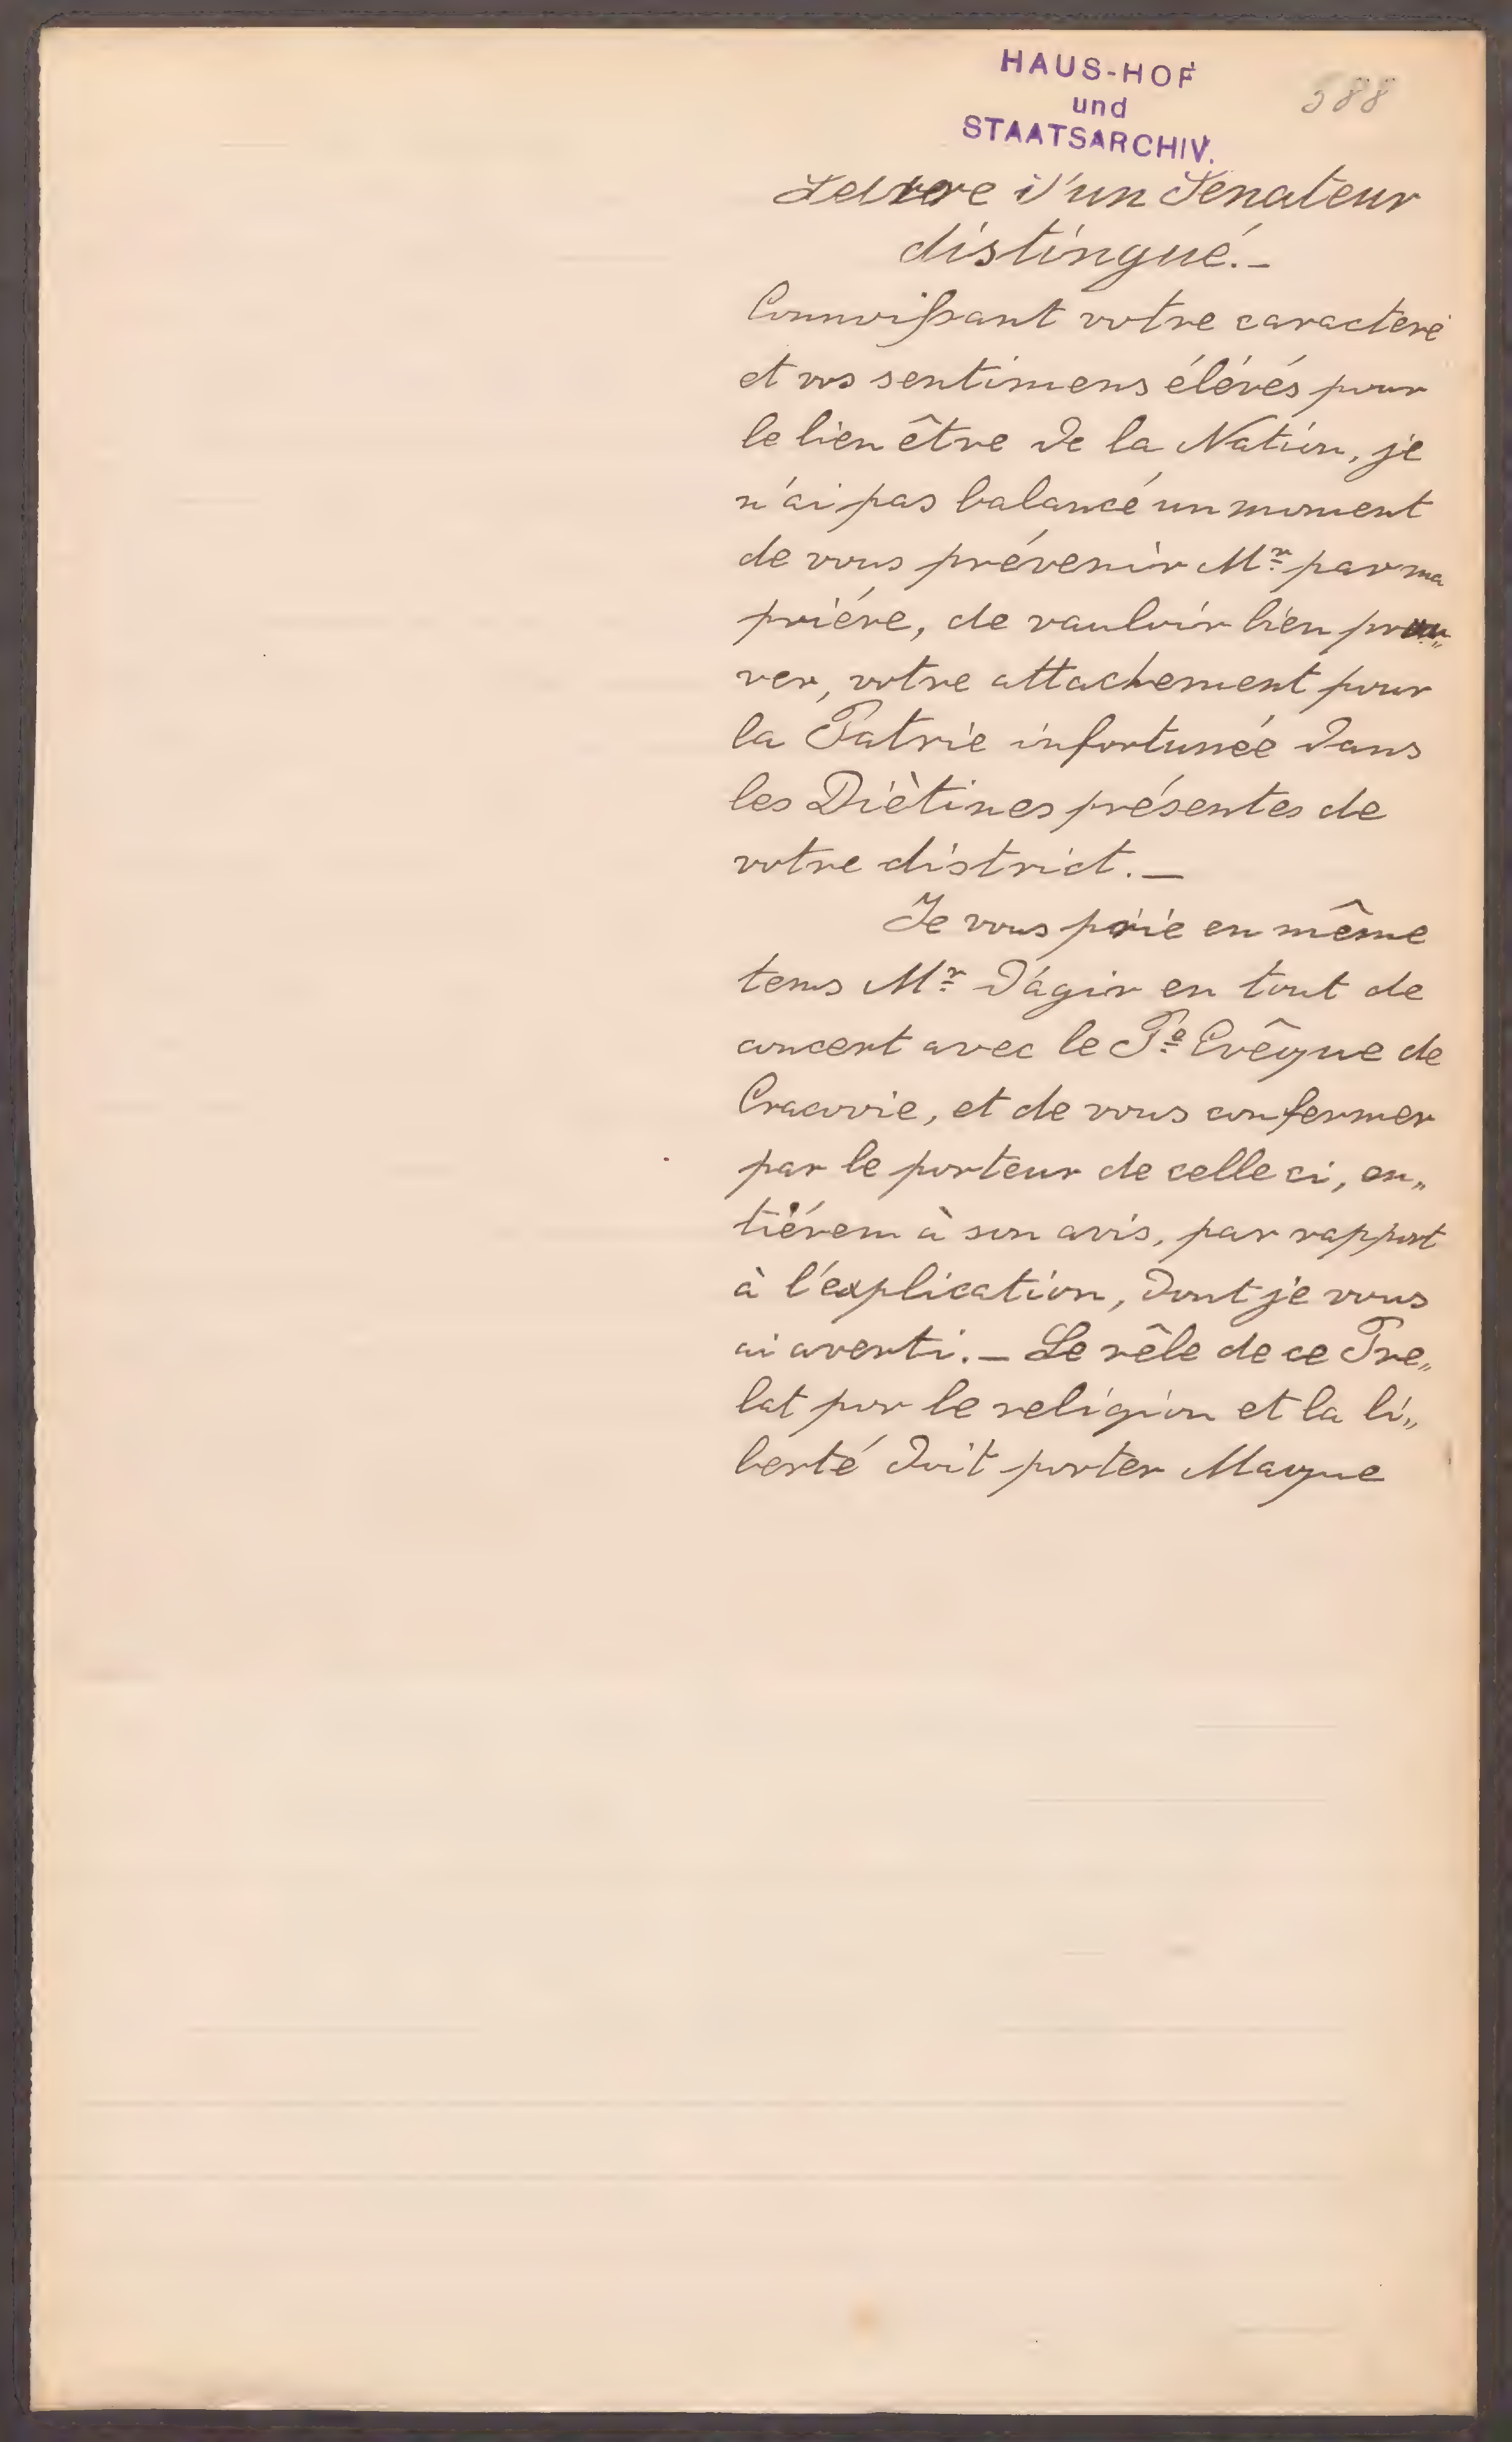 HAUS-HOF
und
STAATSARCHIV.
588
Lettre d'un Senateur
distingué.—
Connoißant votre caractere
et vos sentimens élévés pour
le bien être de la Nation, je
n'ai pas balancé un moment
de vous prévenir Mr par ma
priére, de vauloir bien prou„
ver, votre attachement pour
la Patrie infortunée dans
les Diètines présentes de
votre district.—
Je vous prie en même
tems Mr d'agir en tout de
concert avec le Pe Evêque de
Cracovie, et de vous confermer
par le porteur de celle ci, en„
tiérem à son avis, par rapport
à l'explication, dont je vous
ai averti.— Le rêle de ce Pre„
lat por le religion et la li„
berté doit porter Maque